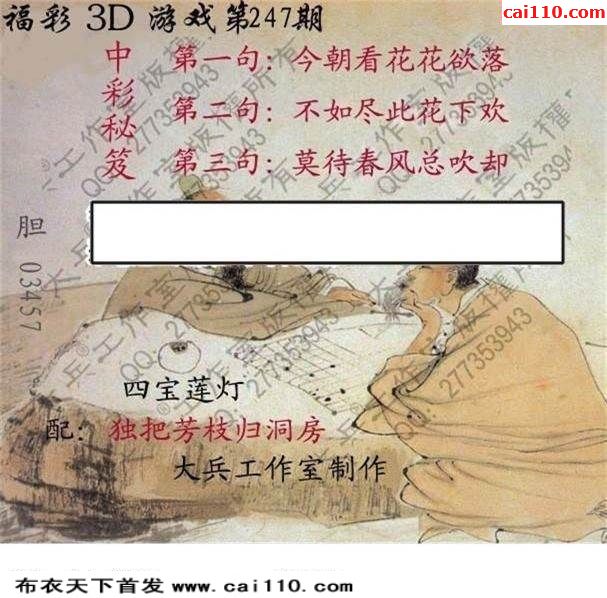 www.
cai110.com
福彩 3D 游戏第247期
中彩秘笈
第一句：今朝看花花欲落
第二句：不如尽此花下欢
第三句：莫待春风总吹却
胆 03457
四宝莲灯
配：独把芳枝归洞房
大兵工作室制作
大兵工作室版权所有
QQ:277353943
布衣天下首发 www.cai110.com